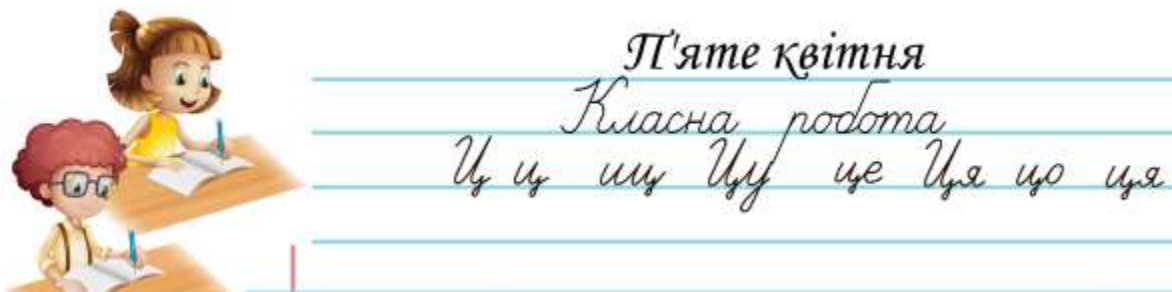 П'яте квітня
Класна робота
Ц ц иц Цу це Ця цо ця